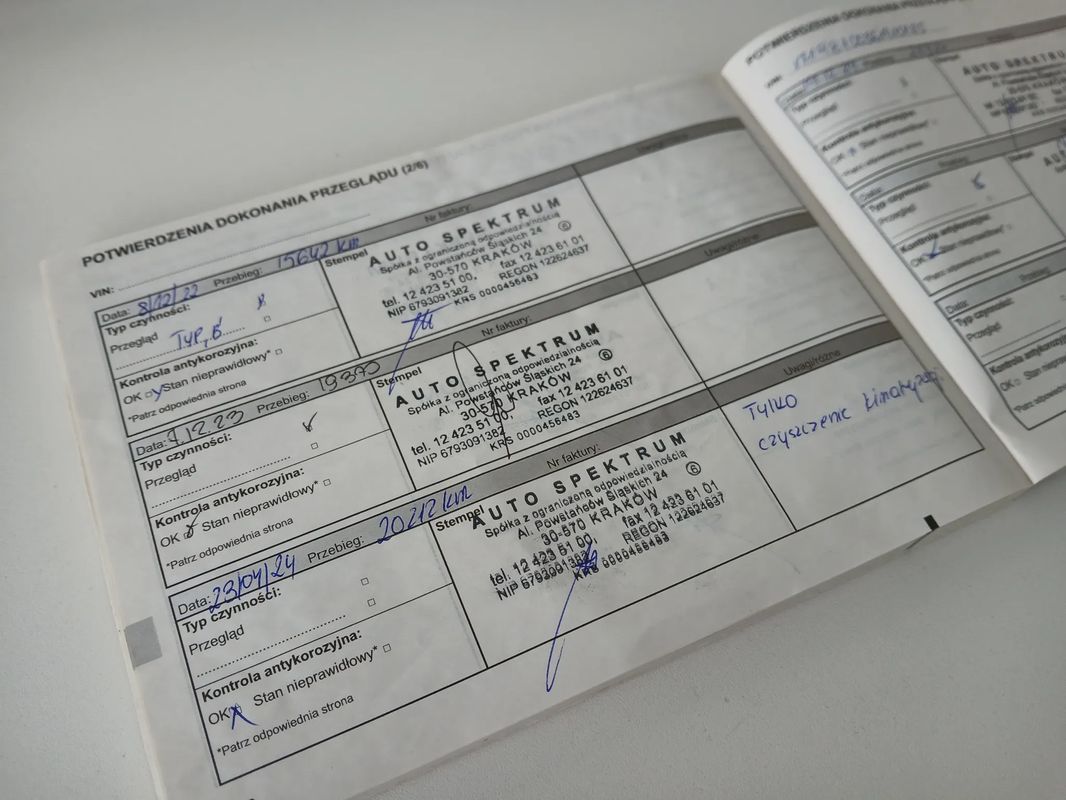 POTWIERDZENIA DOKONANIA PRZEGLĄDU (2/6)
VIN:
Data: 8/12/22 Przebieg: 15642 km Nr faktury: Uwagi/różne
Typ czynności:
Przegląd TYP, B
Kontrola antykorozyjna:
OK Stan nieprawidłowy*
*Patrz odpowiednia strona
Stempel
AUTO SPEKTRUM
Spółka z ograniczoną odpowiedzialnością
Al. Powstańców Śląskich 24 6
30-570 KRAKÓW
tel. 12 423 51 00, fax 12 423 61 01
NIP 6793091382 REGON 122624637
KRS 0000456483
Data: 12.23 Przebieg: Nr faktury: Uwagi/różne
Typ czynności:
Przegląd
Kontrola antykorozyjna:
OK Stan nieprawidłowy*
*Patrz odpowiednia strona
Stempel
AUTO SPEKTRUM
Spółka z ograniczoną odpowiedzialnością
Al. Powstańców Śląskich 24 6
30-570 KRAKÓW
tel. 12 423 51 00, fax 12 423 61 01
NIP 6793091382 REGON 122624637
KRS 0000456483
Data: 23/04/24 Przebieg: 20212 km Nr faktury: Uwagi/różne
Typ czynności:
Przegląd
Kontrola antykorozyjna:
OK Stan nieprawidłowy*
*Patrz odpowiednia strona
Stempel
AUTO SPEKTRUM
Spółka z ograniczoną odpowiedzialnością
Al. Powstańców Śląskich 24 6
30-570 KRAKÓW
tel. 12 423 51 00, fax 12 423 61 01
NIP 6793091382 REGON 122624637
KRS 0000456483
Tylko
czyszczenie klimatyzacji
POTWIERDZENIA DOKONANIA
VIN:
Typ czynności:
Przegląd
Kontrola antykorozyjna:
OK Stan nieprawidłowy*
*Patrz odpowiednia strona
Stempel
AUTO SPEKTRUM
Data: Przebieg:
Typ czynności:
Przegląd
Kontrola antykorozyjna:
OK Stan nieprawidłowy*
*Patrz odpowiednia strona
Stempel
Data: Przebieg:
Typ czynności:
Przegląd
Kontrola
OK Stan
*Patrz odpowiednia